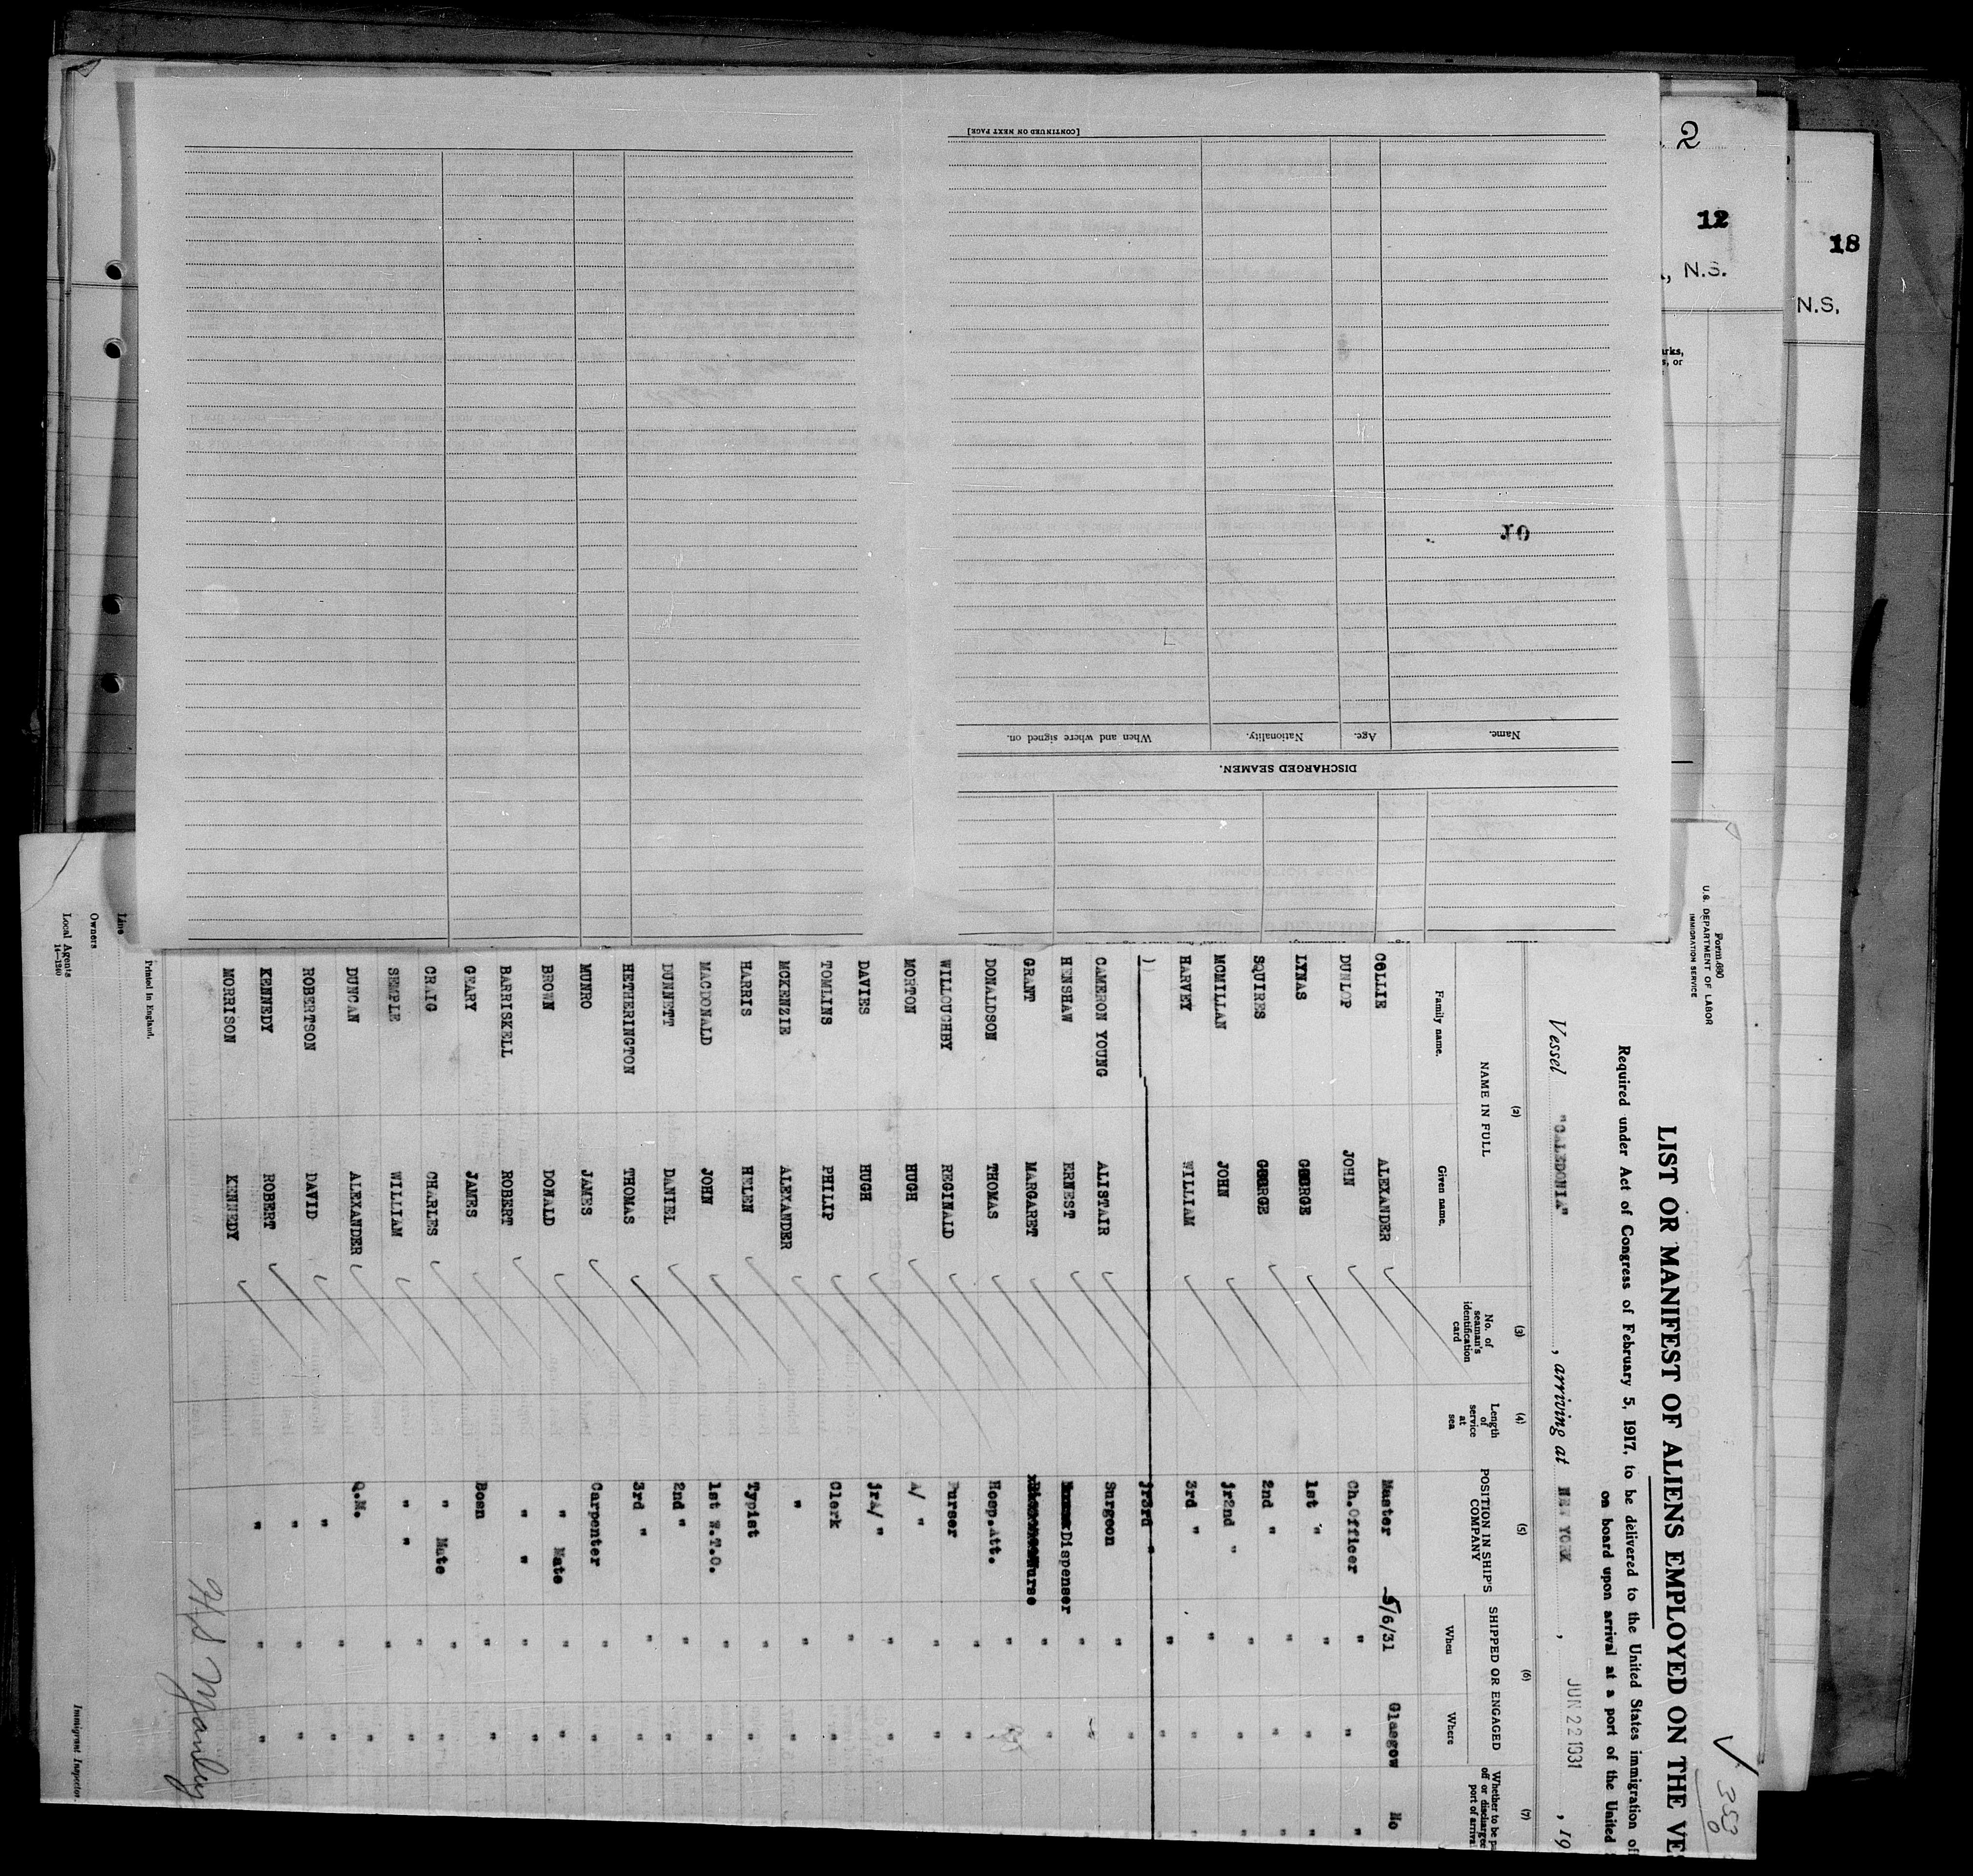 2
12
18
, N.S.
N.S.
rks,
s, or
[CONTINUED ON NEXT PAGE]
10
Name. Age. Nationality. When and where signed on.
DISCHARGED SEAMEN.
Form 680
U.S. DEPARTMENT OF LABOR
IMMIGRATION SERVICE
✓ 353
0
LIST OR MANIFEST OF ALIENS EMPLOYED ON THE VES
Required under Act of Congress of February 5, 1917, to be delivered to the United States immigration of
on board upon arrival at a port of the United
Vessel "CALEDONIA", arriving at NEW YORK, JUN 22 1931, 19
(2) (3) (4) (5) (6) (7)
NAME IN FULL
Family name. Given name.
No. of seaman's identification card
Length of service at sea
POSITION IN SHIP'S COMPANY
SHIPPED OR ENGAGED
When Where
Whether to be p
off or discharge
port of arrival
COLLIE ALEXANDER Master 5/6/31 Glasgow No
DUNLOP JOHN Ch.Officer " " "
LYNAS GEORGE 1st " " " "
SQUIRES GEORGE 2nd " " " "
MCMILLAN JOHN jr2nd " " " "
HARVEY WILLIAM 3rd " " " "
) jr3rd " " "
CAMERON YOUNG ALISTAIR Surgeon " "
HENSHAW ERNEST Dispenser "
GRANT MARGARET Nurse " "
DONALDSON THOMAS Hosp.Att. "
WILLOUGHBY REGINALD Purser " "
MORTON HUGH A/ " " "
DAVIES HUGH jrA/ " " "
TOMLINS PHILIP Clerk " "
MCKENZIE ALEXANDER " " "
HARRIS HELEN Typist " "
MACDONALD JOHN 1st W.T.O. " "
DUNNETT DANIEL 2nd " " "
HETHERINGTON THOMAS 3rd " " "
MUNRO JAMES Carpenter " "
BROWN DONALD " Mate " "
BARRISKELL ROBERT " " " "
GEARY JAMES Bosn " "
CRAIG CHARLES " Mate " "
SEMPLE WILLIAM " " " "
DUNCAN ALEXANDER Q.M. " "
ROBERTSON DAVID " " "
KENNEDY ROBERT " " "
MORRISON KENNEDY " " "
Printed in England.
Line
Owners
Local Agents
14—1240
Immigrant Inspector.